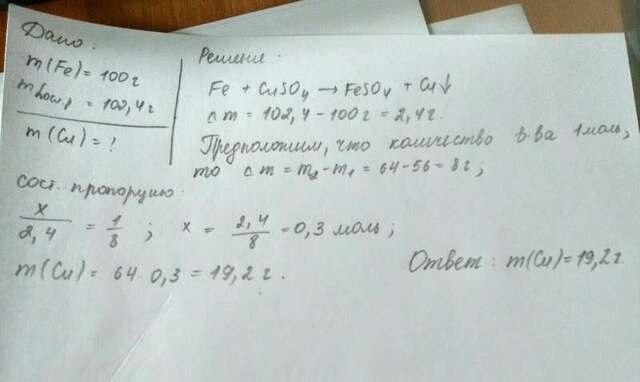 Дано:
m(Fe) = 100 г
m кон. = 102,4 г
m(Cu) = ?
Решение.
Fe + CuSO4 → FeSO4 + Cu↓
Δm = 102,4 - 100 г = 2,4 г.
Предположим, что количество в-ва 1 моль,
то Δm = m2 - m1 = 64 - 56 = 8 г;
сост. пропорцию:
x/2,4 = 1/8 ; x = 2,4/8 = 0,3 моль;
m(Cu) = 64 · 0,3 = 19,2 г.
Ответ: m(Cu) = 19,2 г